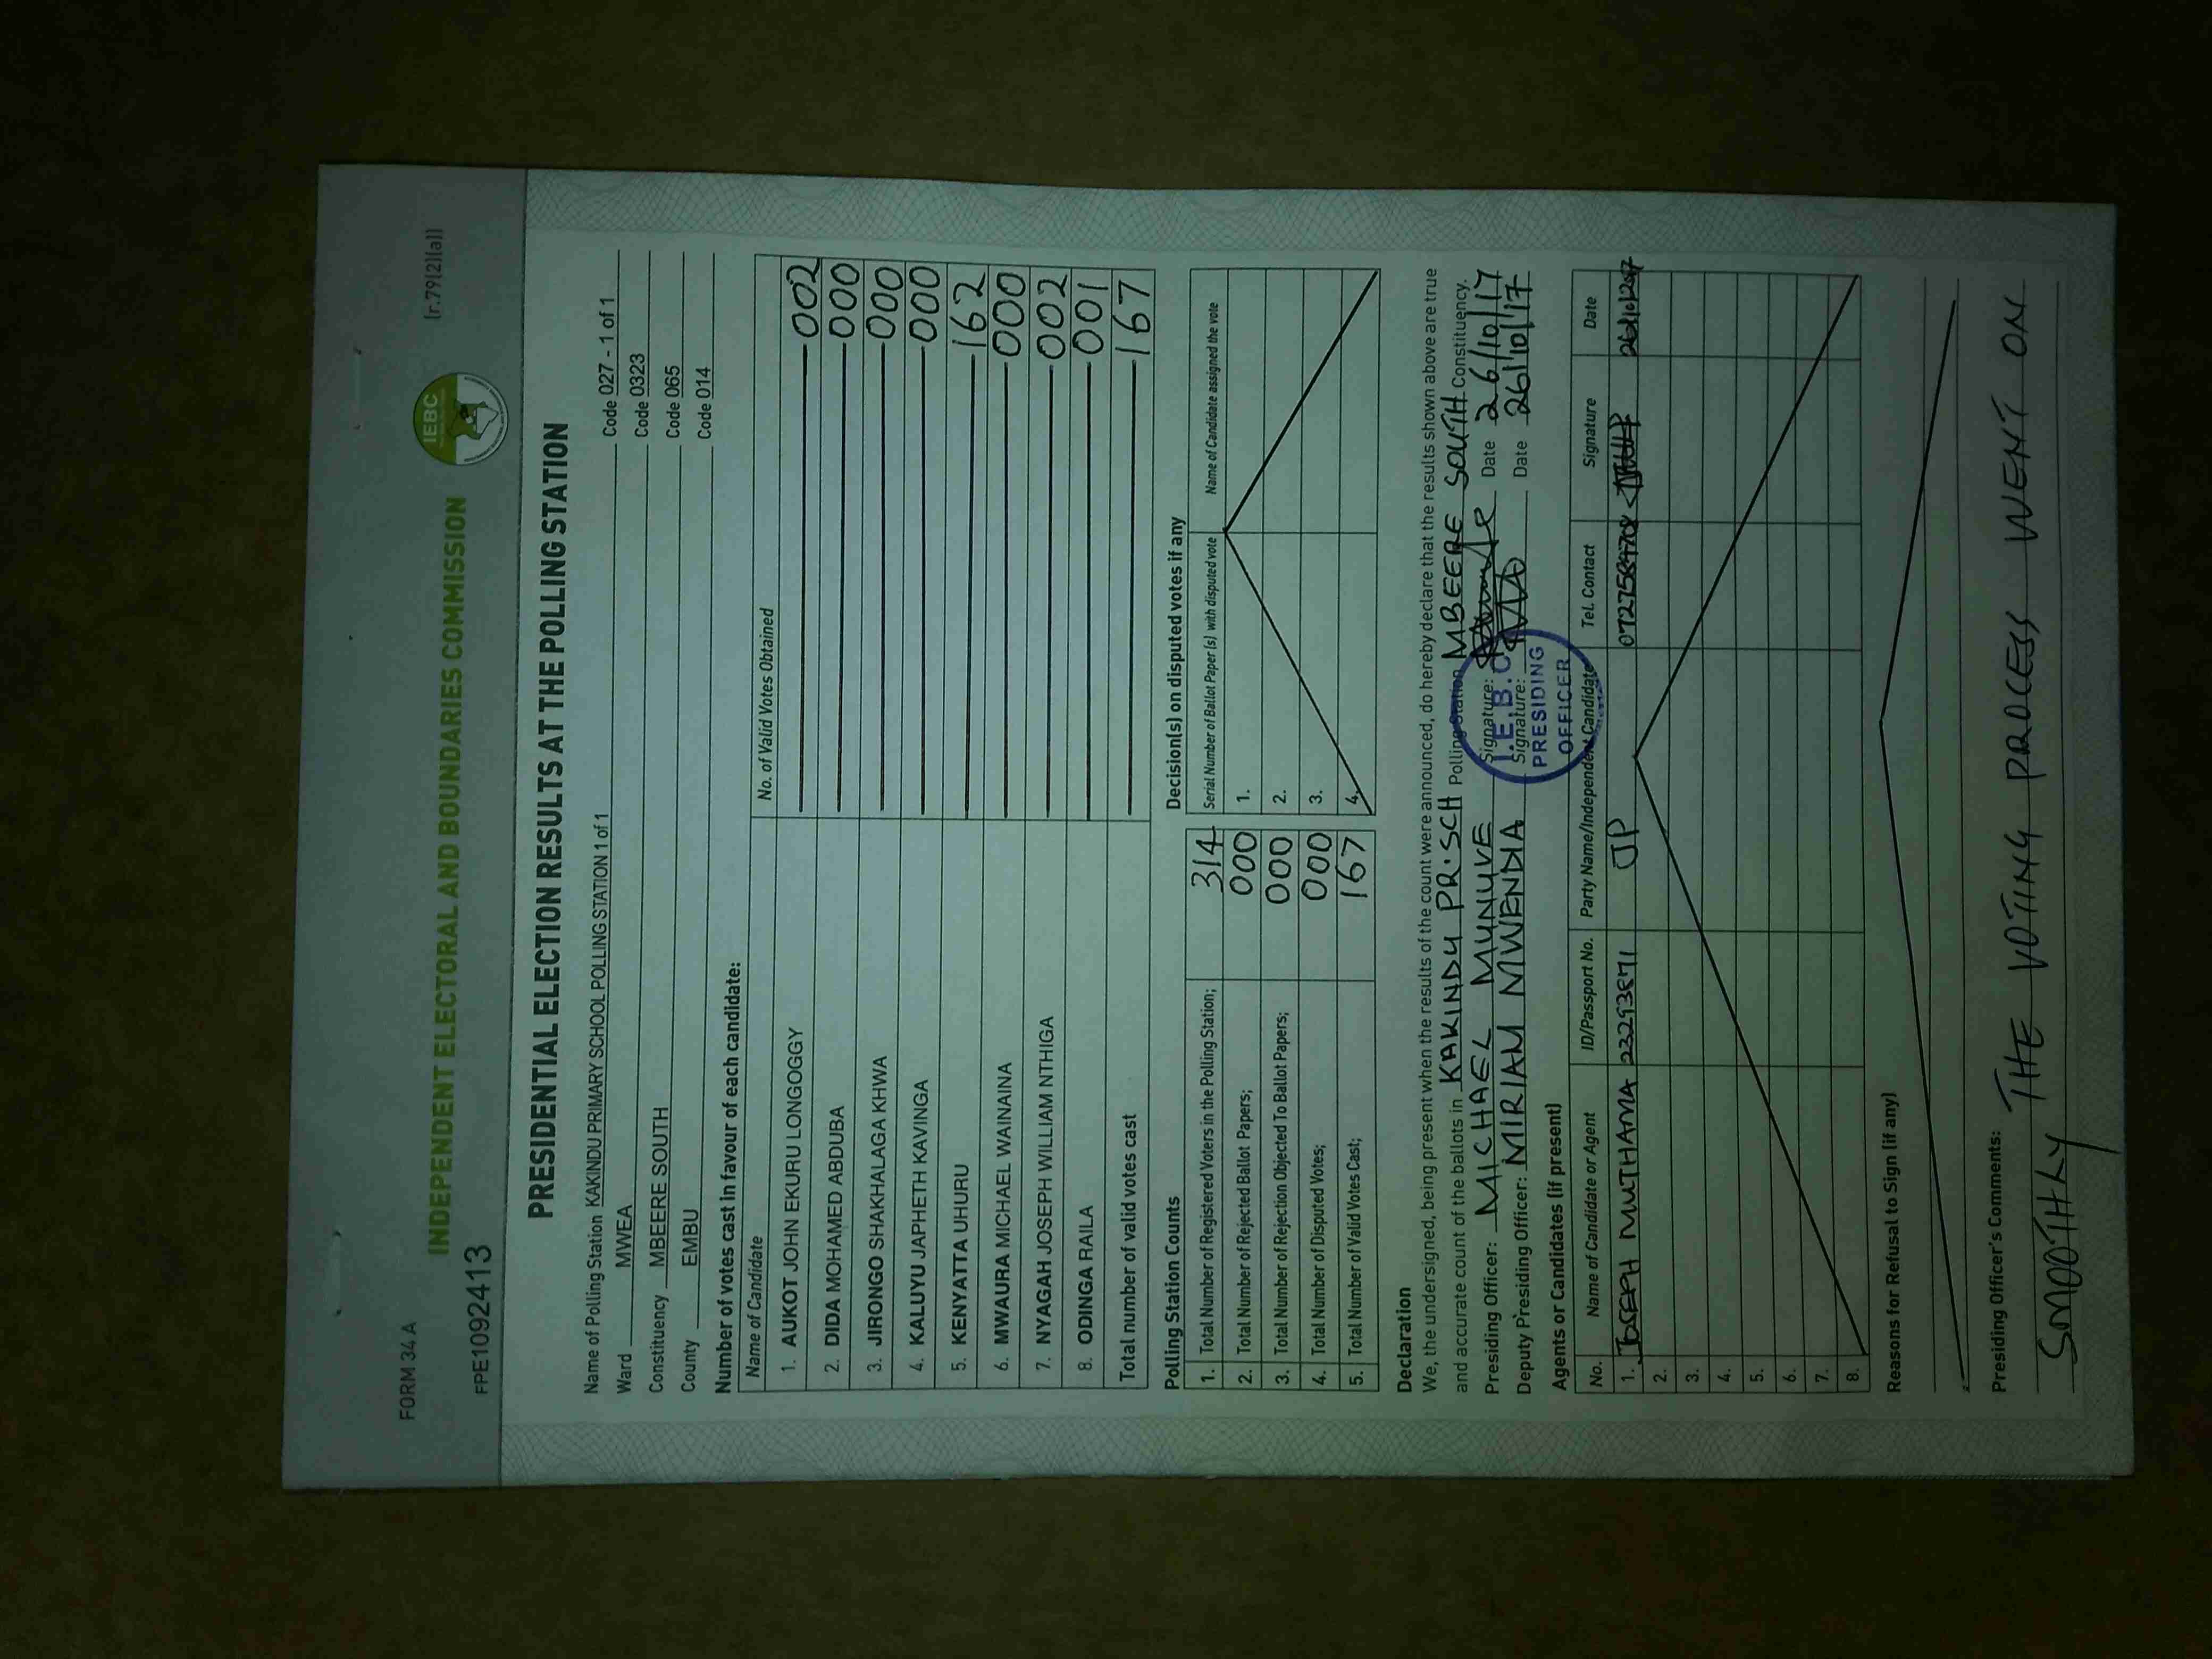 FORM 34 A
(r.79(2)(a))
IEBC
INDEPENDENT ELECTORAL AND BOUNDARIES COMMISSION
FPE1092413
PRESIDENTIAL ELECTION RESULTS AT THE POLLING STATION
Name of Polling Station KAKINDU PRIMARY SCHOOL POLLING STATION 1 of 1 Code 027 - 1 of 1
Ward MWEA Code 0323
Constituency MBEERE SOUTH Code 065
County EMBU Code 014
Number of votes cast in favour of each candidate:
Name of Candidate No. of Valid Votes Obtained
1. AUKOT JOHN EKURU LONGOGGY 002
2. DIDA MOHAMED ABDUBA 000
3. JIRONGO SHAKHALAGA KHWA 000
4. KALUYU JAPHETH KAVINGA 000
5. KENYATTA UHURU 162
6. MWAURA MICHAEL WAINAINA 000
7. NYAGAH JOSEPH WILLIAM NTHIGA 002
8. ODINGA RAILA 001
Total number of valid votes cast 167
Polling Station Counts
1. Total Number of Registered Voters in the Polling Station; 314
2. Total Number of Rejected Ballot Papers; 000
3. Total Number of Rejection Objected To Ballot Papers; 000
4. Total Number of Disputed Votes; 000
5. Total Number of Valid Votes Cast; 167
Decision(s) on disputed votes if any
Serial Number of Ballot Paper (s) with disputed vote Name of Candidate assigned the vote
1.
2.
3.
4.
Declaration
We, the undersigned, being present when the results of the count were announced, do hereby declare that the results shown above are true
and accurate count of the ballots in KAKINDU PR.SCH Polling Station MBEERE SOUTH Constituency.
Presiding Officer: MICHAEL MUNUVE Signature: Date 26/10/17
Deputy Presiding Officer: MIRIAM MWENDIA Signature: Date 26/10/17
I.E.B.C
PRESIDING
OFFICER
Agents or Candidates (if present)
No. Name of Candidate or Agent ID/Passport No. Party Name/Independent Candidate Tel. Contact Signature Date
1. JOSEPH MUTHAMA JP
2.
3.
4.
5.
6.
7.
8.
Reasons for Refusal to Sign (if any)
Presiding Officer's Comments: THE VOTING PROCESS WENT ON
SMOOTHLY